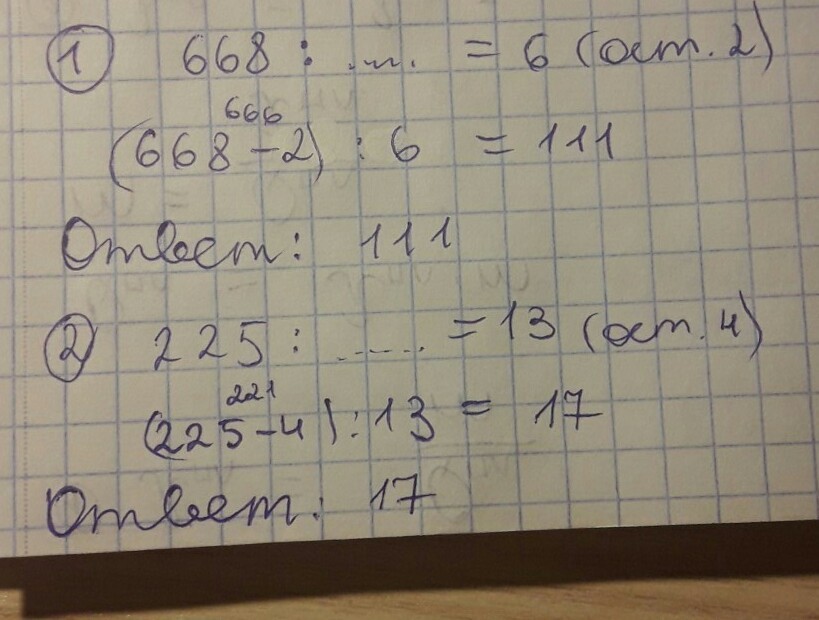 1 668 : ..... = 6 (ост. 2)
666
(668 - 2) : 6 = 111
Ответ: 111
2 225 : ...... = 13 (ост. 4)
221
(225 - 4) : 13 = 17
Ответ: 17